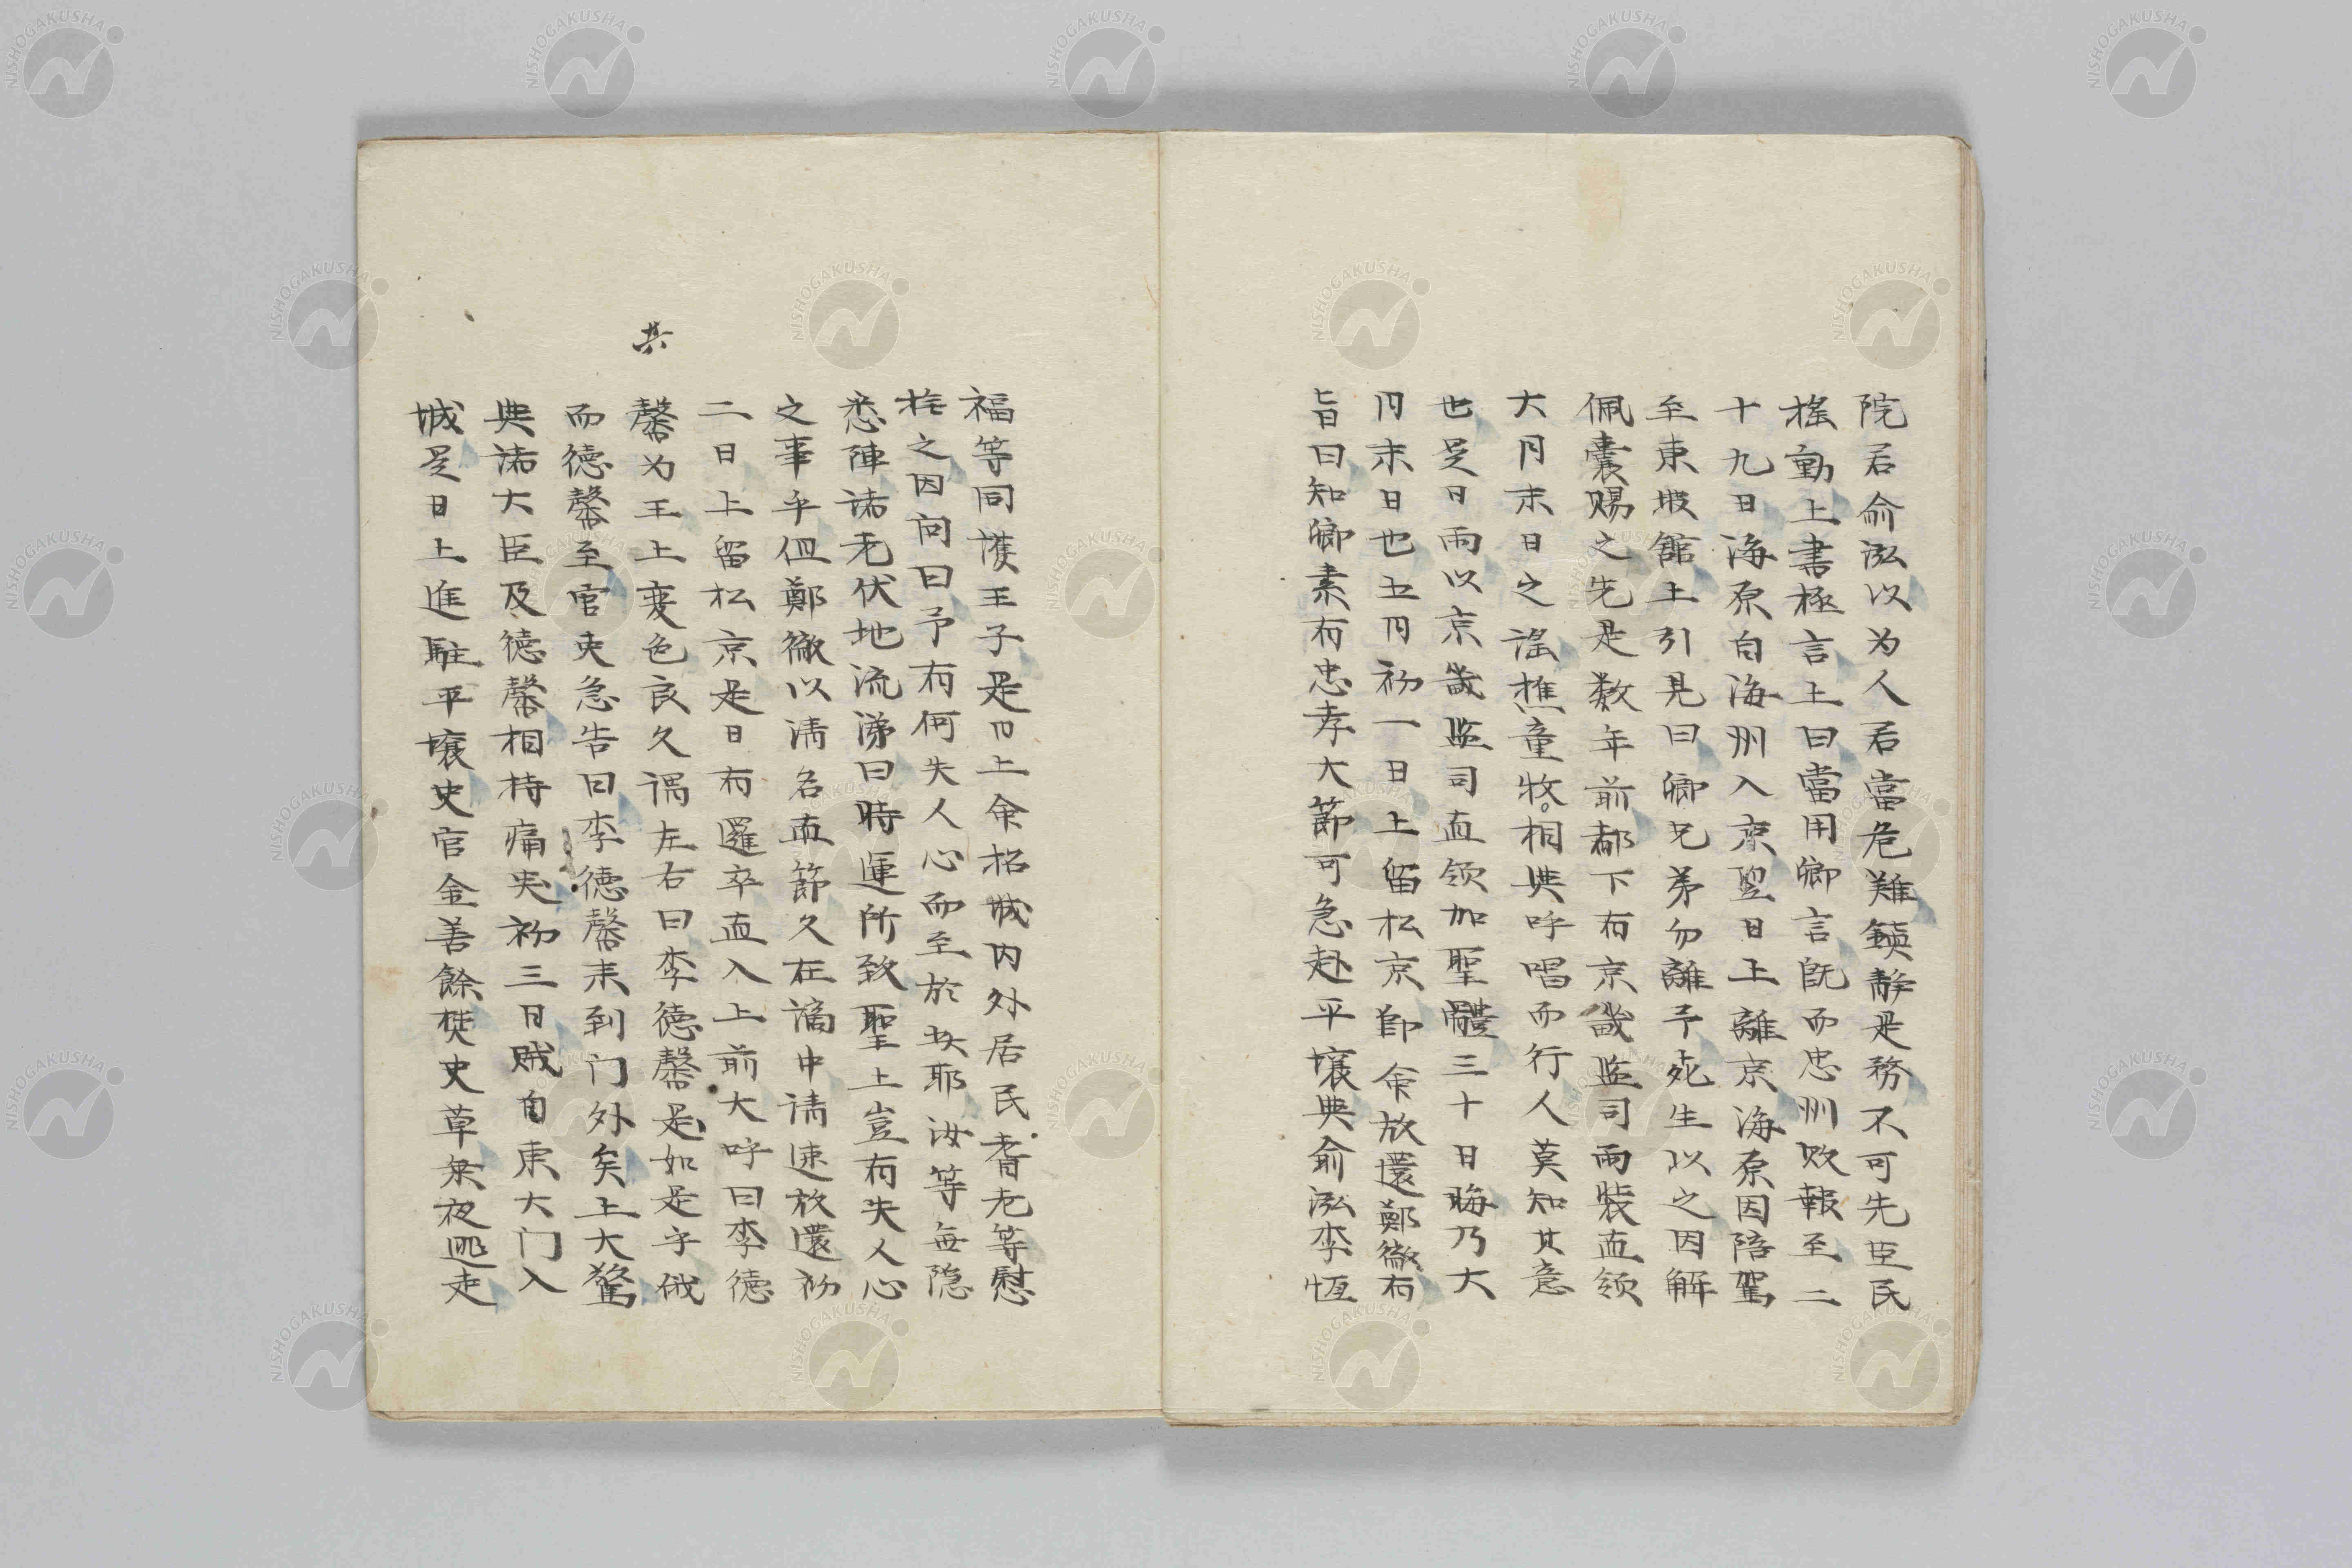 院君俞泓以为人君當危難鎮静是務不可先臣民
搖動上書極言上曰當用卿言既而忠州敗報至二
十九日海原自海州入京翌日上離京海原因陪駕
至東坡館上引見曰卿兄弟勿離予死生以之因解
佩囊賜之先是数年前都下有京畿监司雨裝直领
大月末日之谣樵童牧相與呼唱而行人莫知其意
也是日雨以京畿监司直领加聖體三十日晦乃大
月末日也五月初一日上留松京即命放還鄭澈有
旨曰知卿素有忠孝大節可急赴平壤與俞泓李恆
福等同護王子是日上命招城内外居民耆老等慰
之因问曰予有何失人心而至於此耶汝等毎隐
悉陳諸老伏地流涕曰時運所致聖上豈有失人心
之事乎但鄭澈以清名直節久在謫中请速放還初
二日上留松京是日有邏卒直入上前大呼曰李德
馨为王上变色良久谓左右曰李德馨是如是乎俄
而德馨至官吏急告曰李德馨来到门外矣上大驚
與諸大臣及德馨相持痛哭初三日贼自東大门入
城是日上進駐平壤史官金善餘焚史草乘夜逃走
共
NISHOGAKUSHA